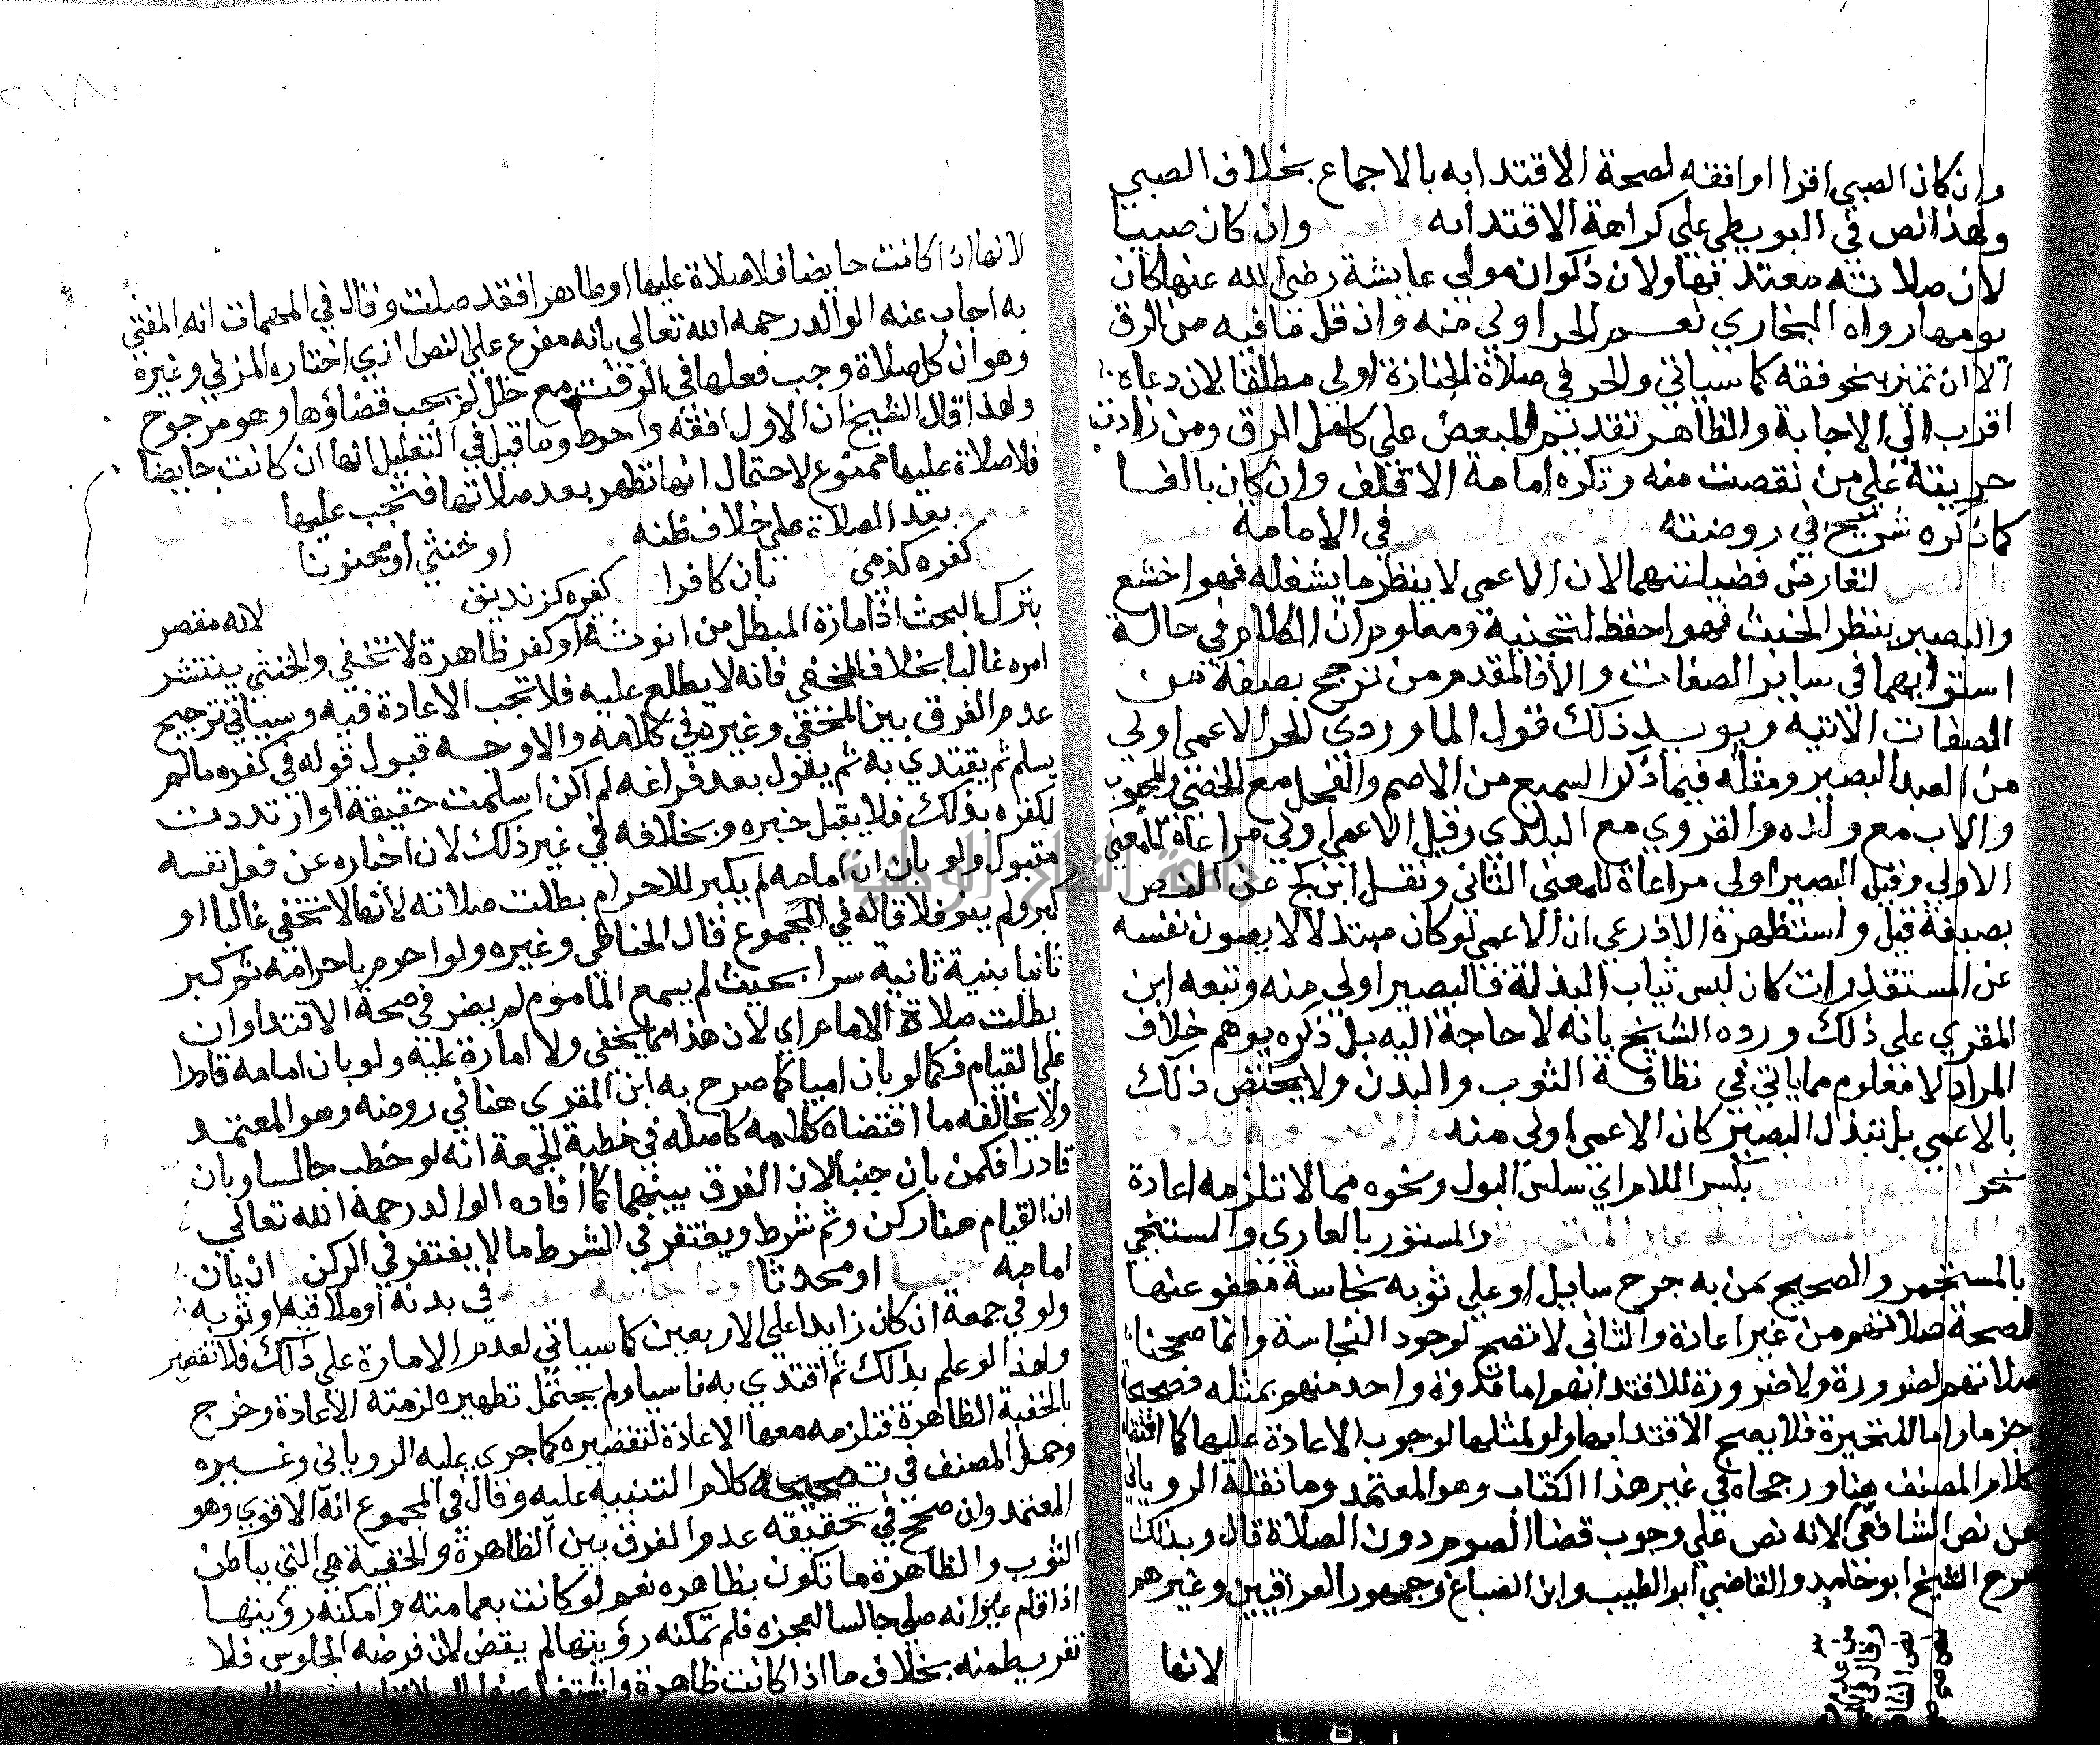 وان كان الصبي اقرا او افقه لصحة الاقتدا به بالاجماع بخلاف الصبي
ولهذا نص في البويطي علي كراهة الاقتدا به والعبد وان كان صبيا
لان صلاته معتد بها ولان ذكوان مولي عايشة رضي الله عنها كان
يومها رواه البخاري نعم الحر اولي منه وان قل ما فيه من الرق
الا ان تميز بنحو فقه كما سياتي والحر في صلاة الجنازة اولي مطلقا لان دعاه
اقرب الي الاجابة والظاهر تقديم المبعض علي كامل الرق ومن زادت
حريته علي من نقصت منه وتكره امامة الاقلف وان كان بالغا
كما ذكره شريح في روضته في الامامة
لتعارض فضيلتهما لان الاعمي لا ينظر ما يشغله فهو اخشع
والبصير ينظر الخبث فهو احفظ لتجنبه ومعلوم ان الكلام في حالة
استوايهما في ساير الصفات والا فالمقدم من ترجح بصفة من
الصفات الاتية ويويد ذلك قول الماوردي الحر الاعمي اولي
من العبد البصير ومثله فيما ذكر السميع من الاصم والفحل مع الخصي والمجبوب
والاب مع ولده والقروي مع البلدي وقيل الاعمي اولي مراعاة للمعني
الاولي وقيل البصير اولي مراعاة للمعني الثاني ونقل ابن كج عن النص
بصيغة قيل واستظهره الاذرعي ان الاعمي لو كان مبتذلا لا يصون نفسه
عن المستقذرات كان لبس ثياب البذلة فالبصير اولي منه وتبعه ابن
المقري علي ذلك ورده الشيخ بانه لا حاجة اليه بل ذكره يوهم خلاف
المراد لا معلوم مما ياتي في نظافة الثوب والبدن ولا يختص ذلك
بالاعمي بل لتبذل البصير كان الاعمي اولي منه
نحو السليم بالسلس بكسر اللام اي سلس البول ونحوه مما لا تلزمه اعادة
والطاهر بالمستحاضة غير المتحيرة والمستور بالعاري والمستنجي
بالمستجمر والصحيح بمن به جرح سايل او علي ثوبه نجاسة معفو عنها
لصحة صلاتهم من غير اعادة والثاني لا تصح لوجود النجاسة وانما صححنا
صلاتهم لضرورة ولا ضرورة للاقتدا بهم اما قدوة واحد منهم بمثله فصحيحة
جزما واما المتحيرة فلا يصح الاقتدا بها ولو لمثلها لوجوب الاعادة عليها كما اقتضاه
كلام المصنف هنا ورجحاه في غير هذا الكتاب وهو المعتمد وما نقله الروياني
عن نص الشافعي لانه نص علي وجوب قضا الصوم دون الصلاة قال وبذلك
صرح الشيخ ابو حامد والقاضي ابو الطيب وابن الصباغ وجمهور العراقيين وغيرهم
لانها
لانها ان كانت حايضا فلا صلاة عليها او طاهرا فقد صلت وقال في المهمات انه المفتي
به اجاب عنه الوالد رحمه الله تعالي بانه مفرع علي النص الذي اختاره المزني وغيره
وهو ان كل صلاة وجب فعلها في الوقت مع خلل لم يجب قضاؤها وهو مرجوح
ولهذا قال الشيخ ان الاول افقه واحوط وما قيل في التعليل انها ان كانت حايضا
فلا صلاة عليها ممنوع لاحتمال انها تطهر بعد صلاتها فتجب عليها
بعد الصلاة علي خلاف ظنه او خنثي او مجنونا
كفره كذمي بان كافرا كفره كزنديق لانه مقصر
بترك البحث اذ امارة المبطل من انوثة او كفر ظاهرة لا تخفي والخنثي ينتشر
امره غالبا بخلاف المخفي فانه لا يطلع عليه فلا تجب الاعادة فيه وسياتي ترجيح
عدم الفرق بين المخفي وغيره في كلامه والاوجه قبول قوله في كفره ما لم
يسلم ثم يقتدي به ثم يقول بعد فراغه لم اكن اسلمت حقيقة او ارتددت
لكفره بذلك فلا يقبل خبره وبخلافه في غير ذلك لان اخباره عن فعل نفسه
مقبول ولو بان ان امامه لم يكبر للاحرام بطلت صلاته لانها لا تخفي غالبا او
كبر ولم ينو فلا قاله في المجموع قال الحناطي وغيره ولو احرم باحرامه ثم كبر
ثانيا بنية ثانية سرا بحيث لم يسمع الماموم لم يضر في صحة الاقتدا وان
بطلت صلاة الامام اي لان هذا مما يخفي ولا امارة عليه ولو بان امامه قادرا
علي القيام فكما لو بان اميا كما صرح به ابن المقري هنا في روضه وهو المعتمد
ولا يخالفه ما اقتضاه كلامه كاصله في خطبة الجمعة انه لو خطب جالسا وبان
قادرا فكمن بان جنبا لان الفرق بينهما كما افاده الوالد رحمه الله تعالي
ان القيام هنا ركن وثم شرط ويغتفر في الشرط ما لا يغتفر في الركن ان بان
امامه جنبا او محدثا او ذا نجاسة خفية في بدنه او ملاقيه او ثوبه
ولو في جمعة ان كان زايدا علي الاربعين كما سياتي لعدم الامارة علي ذلك فلا تقصير
ولهذا لو علم بذلك ثم اقتدي به ناسيا ولم يحتمل تطهيره لزمته الاعادة وخرج
بالخفية الظاهرة فتلزمه معها الاعادة لتقصيره كما جري عليه الروياني وغيره
وحمل المصنف في تصحيحه كلام التنبيه عليه وقال في المجموع انه الاقوي وهو
المعتمد وان صحح في تحقيقه عدم الفرق بين الظاهرة والخفية هي التي بباطن
الثوب والظاهرة ما تكون بظاهره نعم لو كانت بعمامته وامكنه رؤيتها
اذا قام غير انه صلي جالسا لعجزه فلم تمكنه رؤيتها لم يقض لان فرضه الجلوس فلا
تفريط منه بخلاف ما اذا كانت ظاهرة